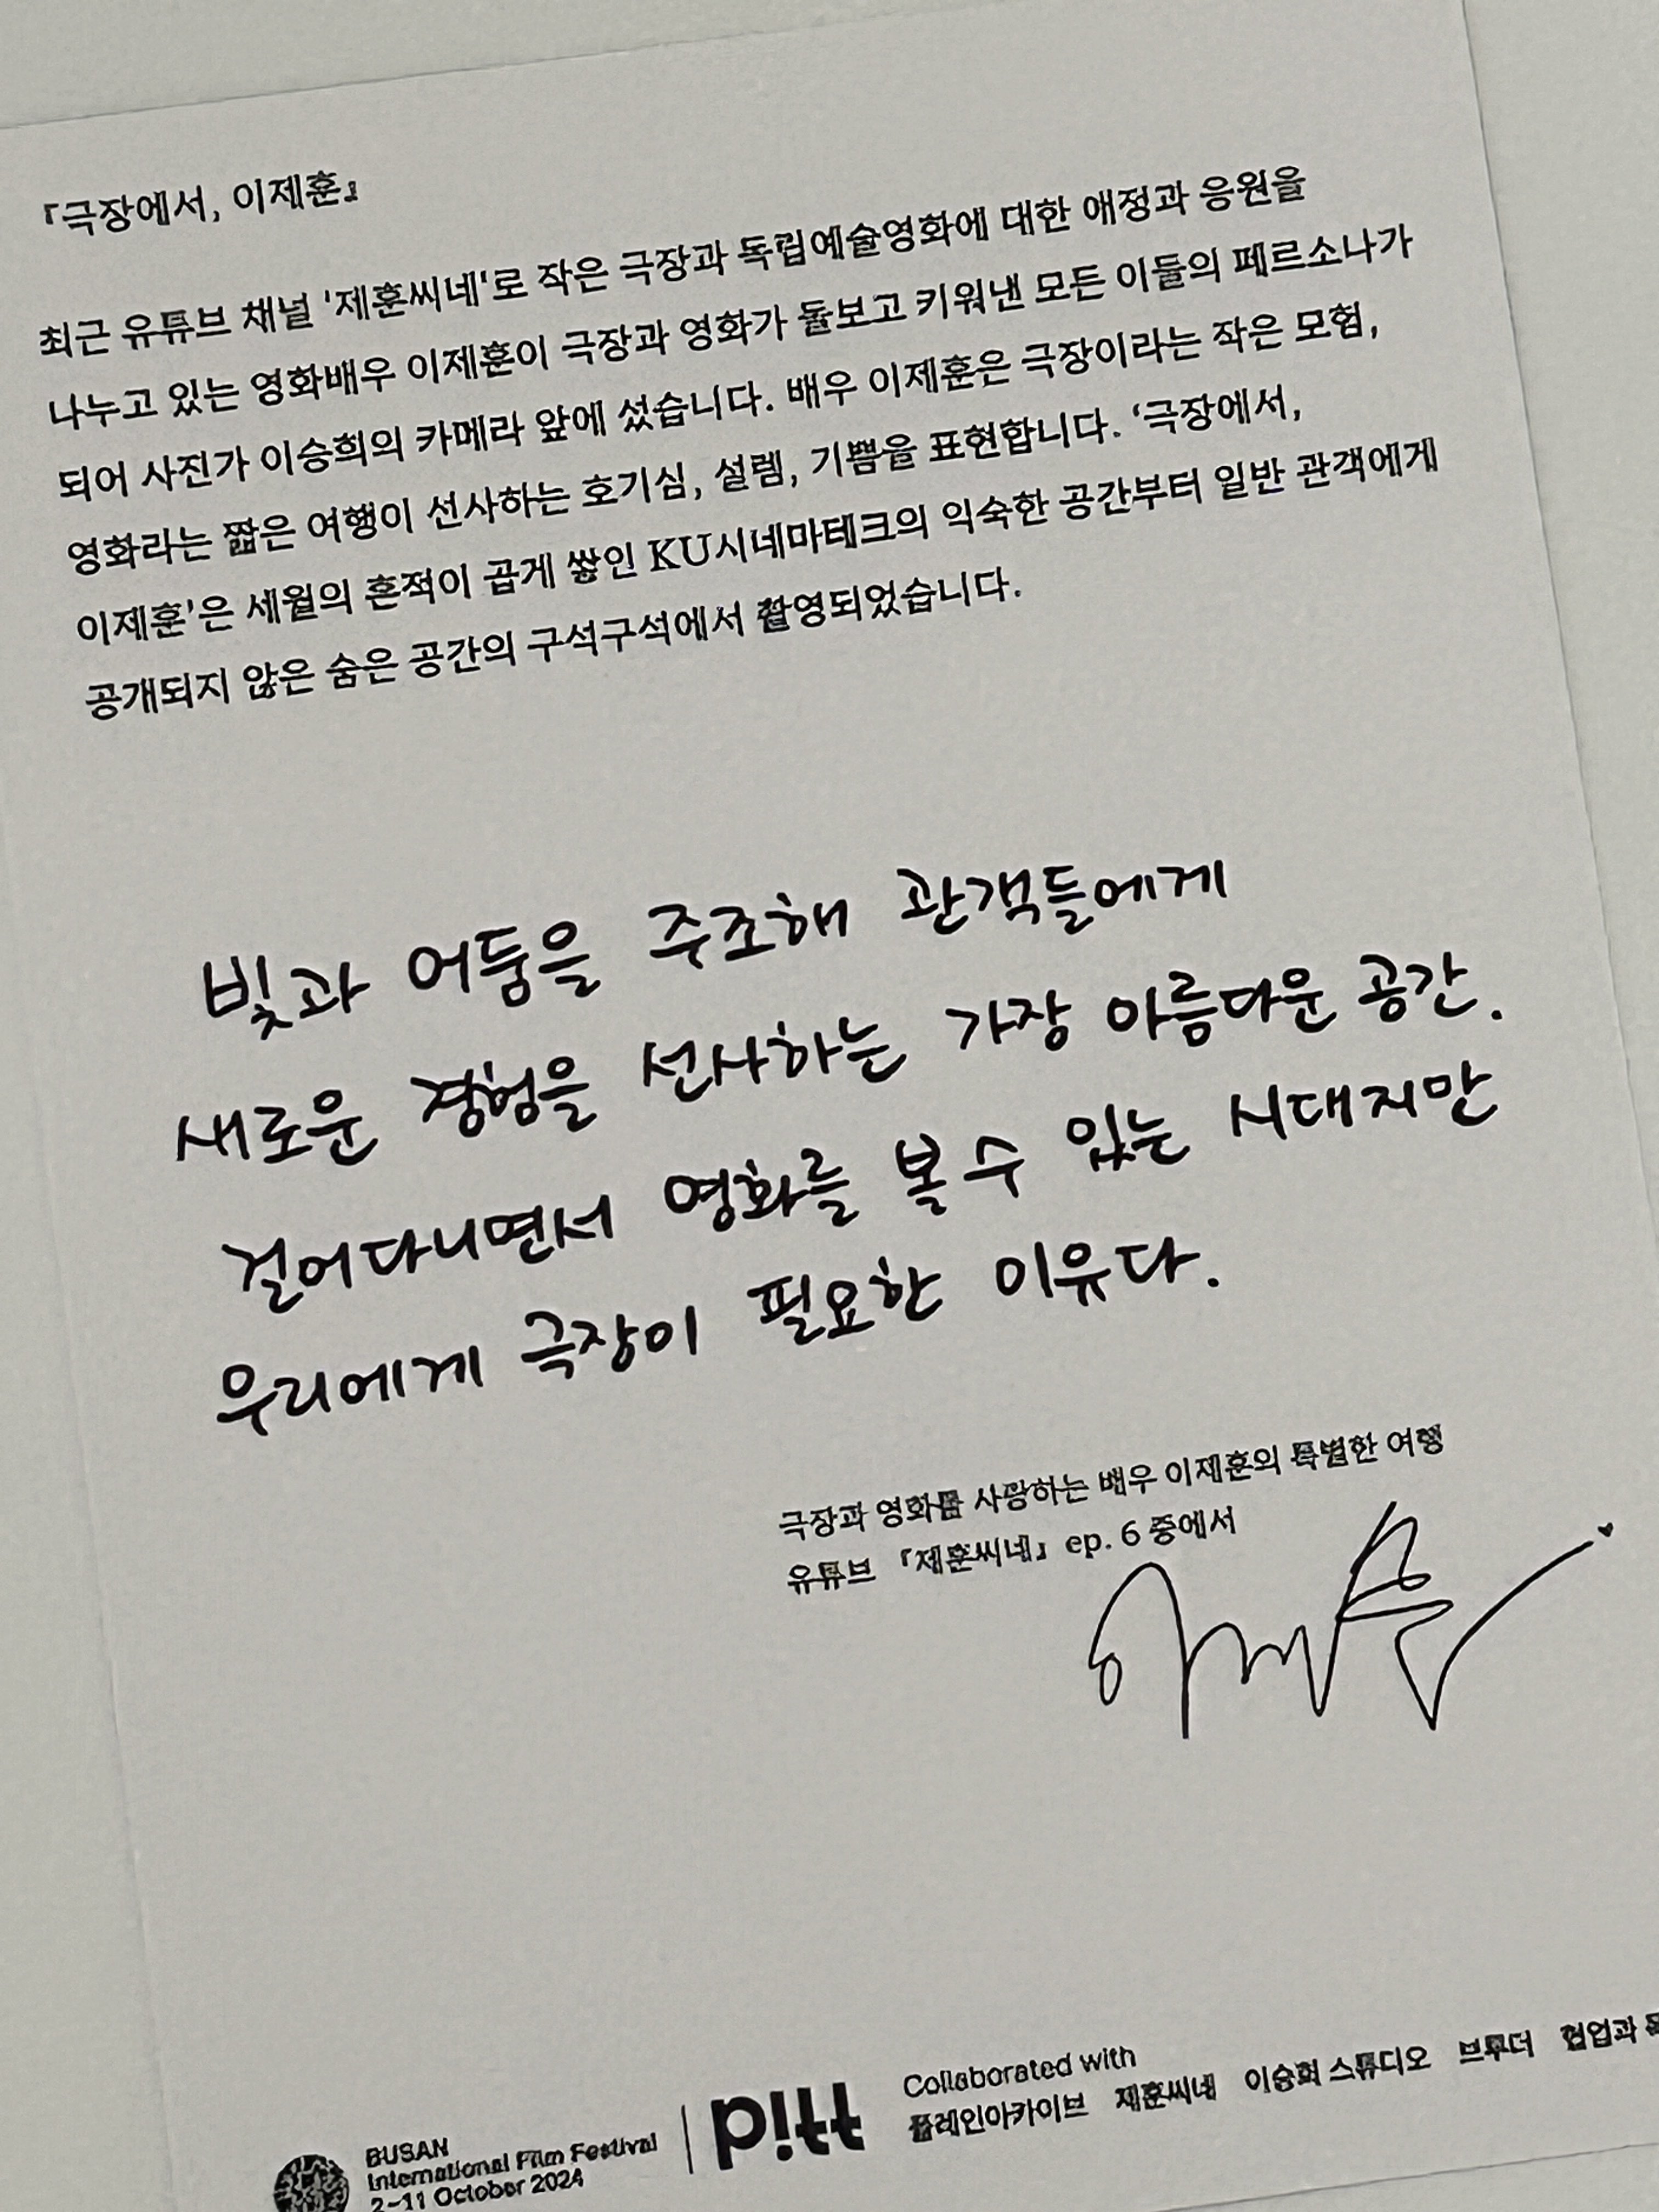 『극장에서, 이제훈』
최근 유튜브 채널 '제훈씨네'로 작은 극장과 독립예술영화에 대한 애정과 응원을
나누고 있는 영화배우 이제훈이 극장과 영화가 돌보고 키워낸 모든 이들의 페르소나가
되어 사진가 이승희의 카메라 앞에 섰습니다. 배우 이제훈은 극장이라는 작은 모험,
영화라는 짧은 여행이 선사하는 호기심, 설렘, 기쁨을 표현합니다. ‘극장에서,
이제훈'은 세월의 흔적이 곱게 쌓인 KU시네마테크의 익숙한 공간부터 일반 관객에게
공개되지 않은 숨은 공간의 구석구석에서 촬영되었습니다.
빛과 어둠을 주조해 관객들에게
새로운 경험을 선사하는 가장 아름다운 공간.
걸어다니면서 영화를 볼 수 있는 시대지만
우리에게 극장이 필요한 이유다.
극장과 영화를 사랑하는 배우 이제훈의 특별한 여행
유튜브 『제훈씨네』 ep. 6 중에서
Collaborated with
플레인아카이브 제훈씨네 이승희 스튜디오 브루더 협업과
BUSAN
International Film Festival
2–11 October 2024